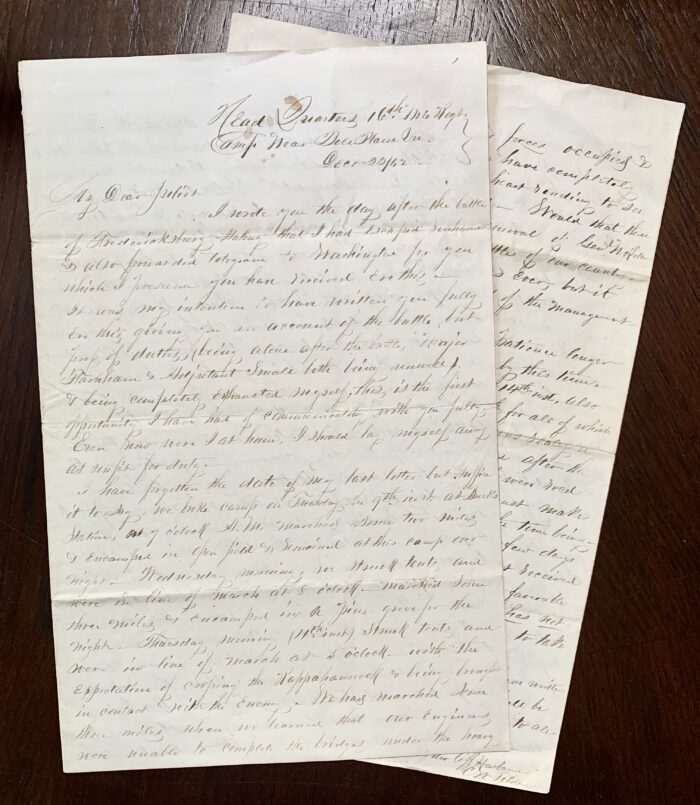 1
Head Quarters 16th Me Regt
Camp Near Belle Plain Va
Decr 22/62
My Dear Juliet
I wrote you the day after the battle
of Fredericksburg stating that I had escaped unharmed
& also forwarded telegram to Washington for you
which I presume you have received ere this.
It was my intention to have written you fully
ere this giving you an account of the battle, but
press of duties, (being alone after the battle, Major
Farnham & Adjutant Small both being unwell)
& being completely exhausted myself, this is the first
opportunity I have had of communicating with you fully.
Even now were I at home, I should lay myself away
as unfit for duty.
I have forgotten the date of my last letter but suffice
it to say, we broke camp on Tuesday the 9th inst at Brooks
Station, at 9 oclock A.M. marched some two miles
& encamped in open field & remained at this camp over
night. Wednesday morning, we struck tents, and
were in line of march at 8 oclock. marched some
three miles & encamped in a pine grove for the
night. Thursday morning (11th inst) struck tents and
were in line of march at 5 oclock with the
expectation of crossing the Rappahannock & being brought
in contact with the enemy. We had marched some
three miles, when we learned that our Engineers
were unable to complete the bridges under the heavy
forces occupied &
have completely
heart rending to see
Would that their
removal of Genl McClellan
of our country
Ever, but it
of the management
Patience longer
by this time
14th inst. Also
for all of which
after the
were read
must make
time being
few days
received
favorable
has not
to take
write
be
to all
Husband